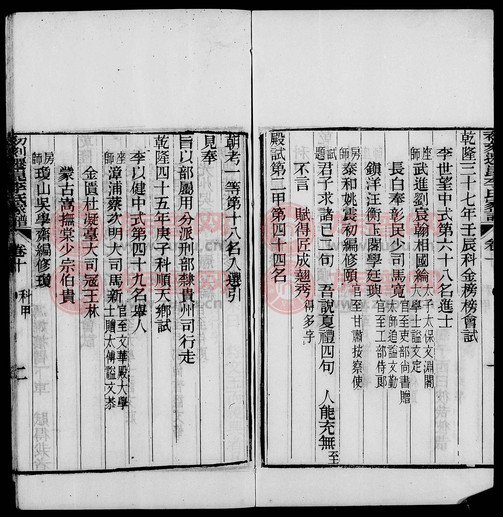 乾隆三十七年壬辰科金榜榜會試
李世望中式第六十八名進士
座師
武進劉袁翰相國綸 太子太保文淵閣大學士謚文定
長白奉彰民少司馬寬 官至吏部尚書贈太師謚文勤
鎮洋汪衡玉閣學廷璵 官至工部侍郎
房師
泰和姚震初編修頤 官至甘肅按察使
試題
君子求諸己二句 吾說夏禮四句 人能充無 至
不言 賦得匠成翹秀 得多字
殿試第二甲第四十四名
朝考一等第十八名入選引
見奉
旨以部屬用分派刑部隸貴州司行走
乾隆四十五年庚子科順天鄉試
李以健中式第四十九名舉人
座師
漳浦蔡次明大司馬新 官至文華殿大學士贈太傅謚文恭
金匱杜凝臺大司寇玉林
蒙古嵩撫棠少宗伯貴
房師
瓊山吳學齋編修瓊
卷十 科甲 二